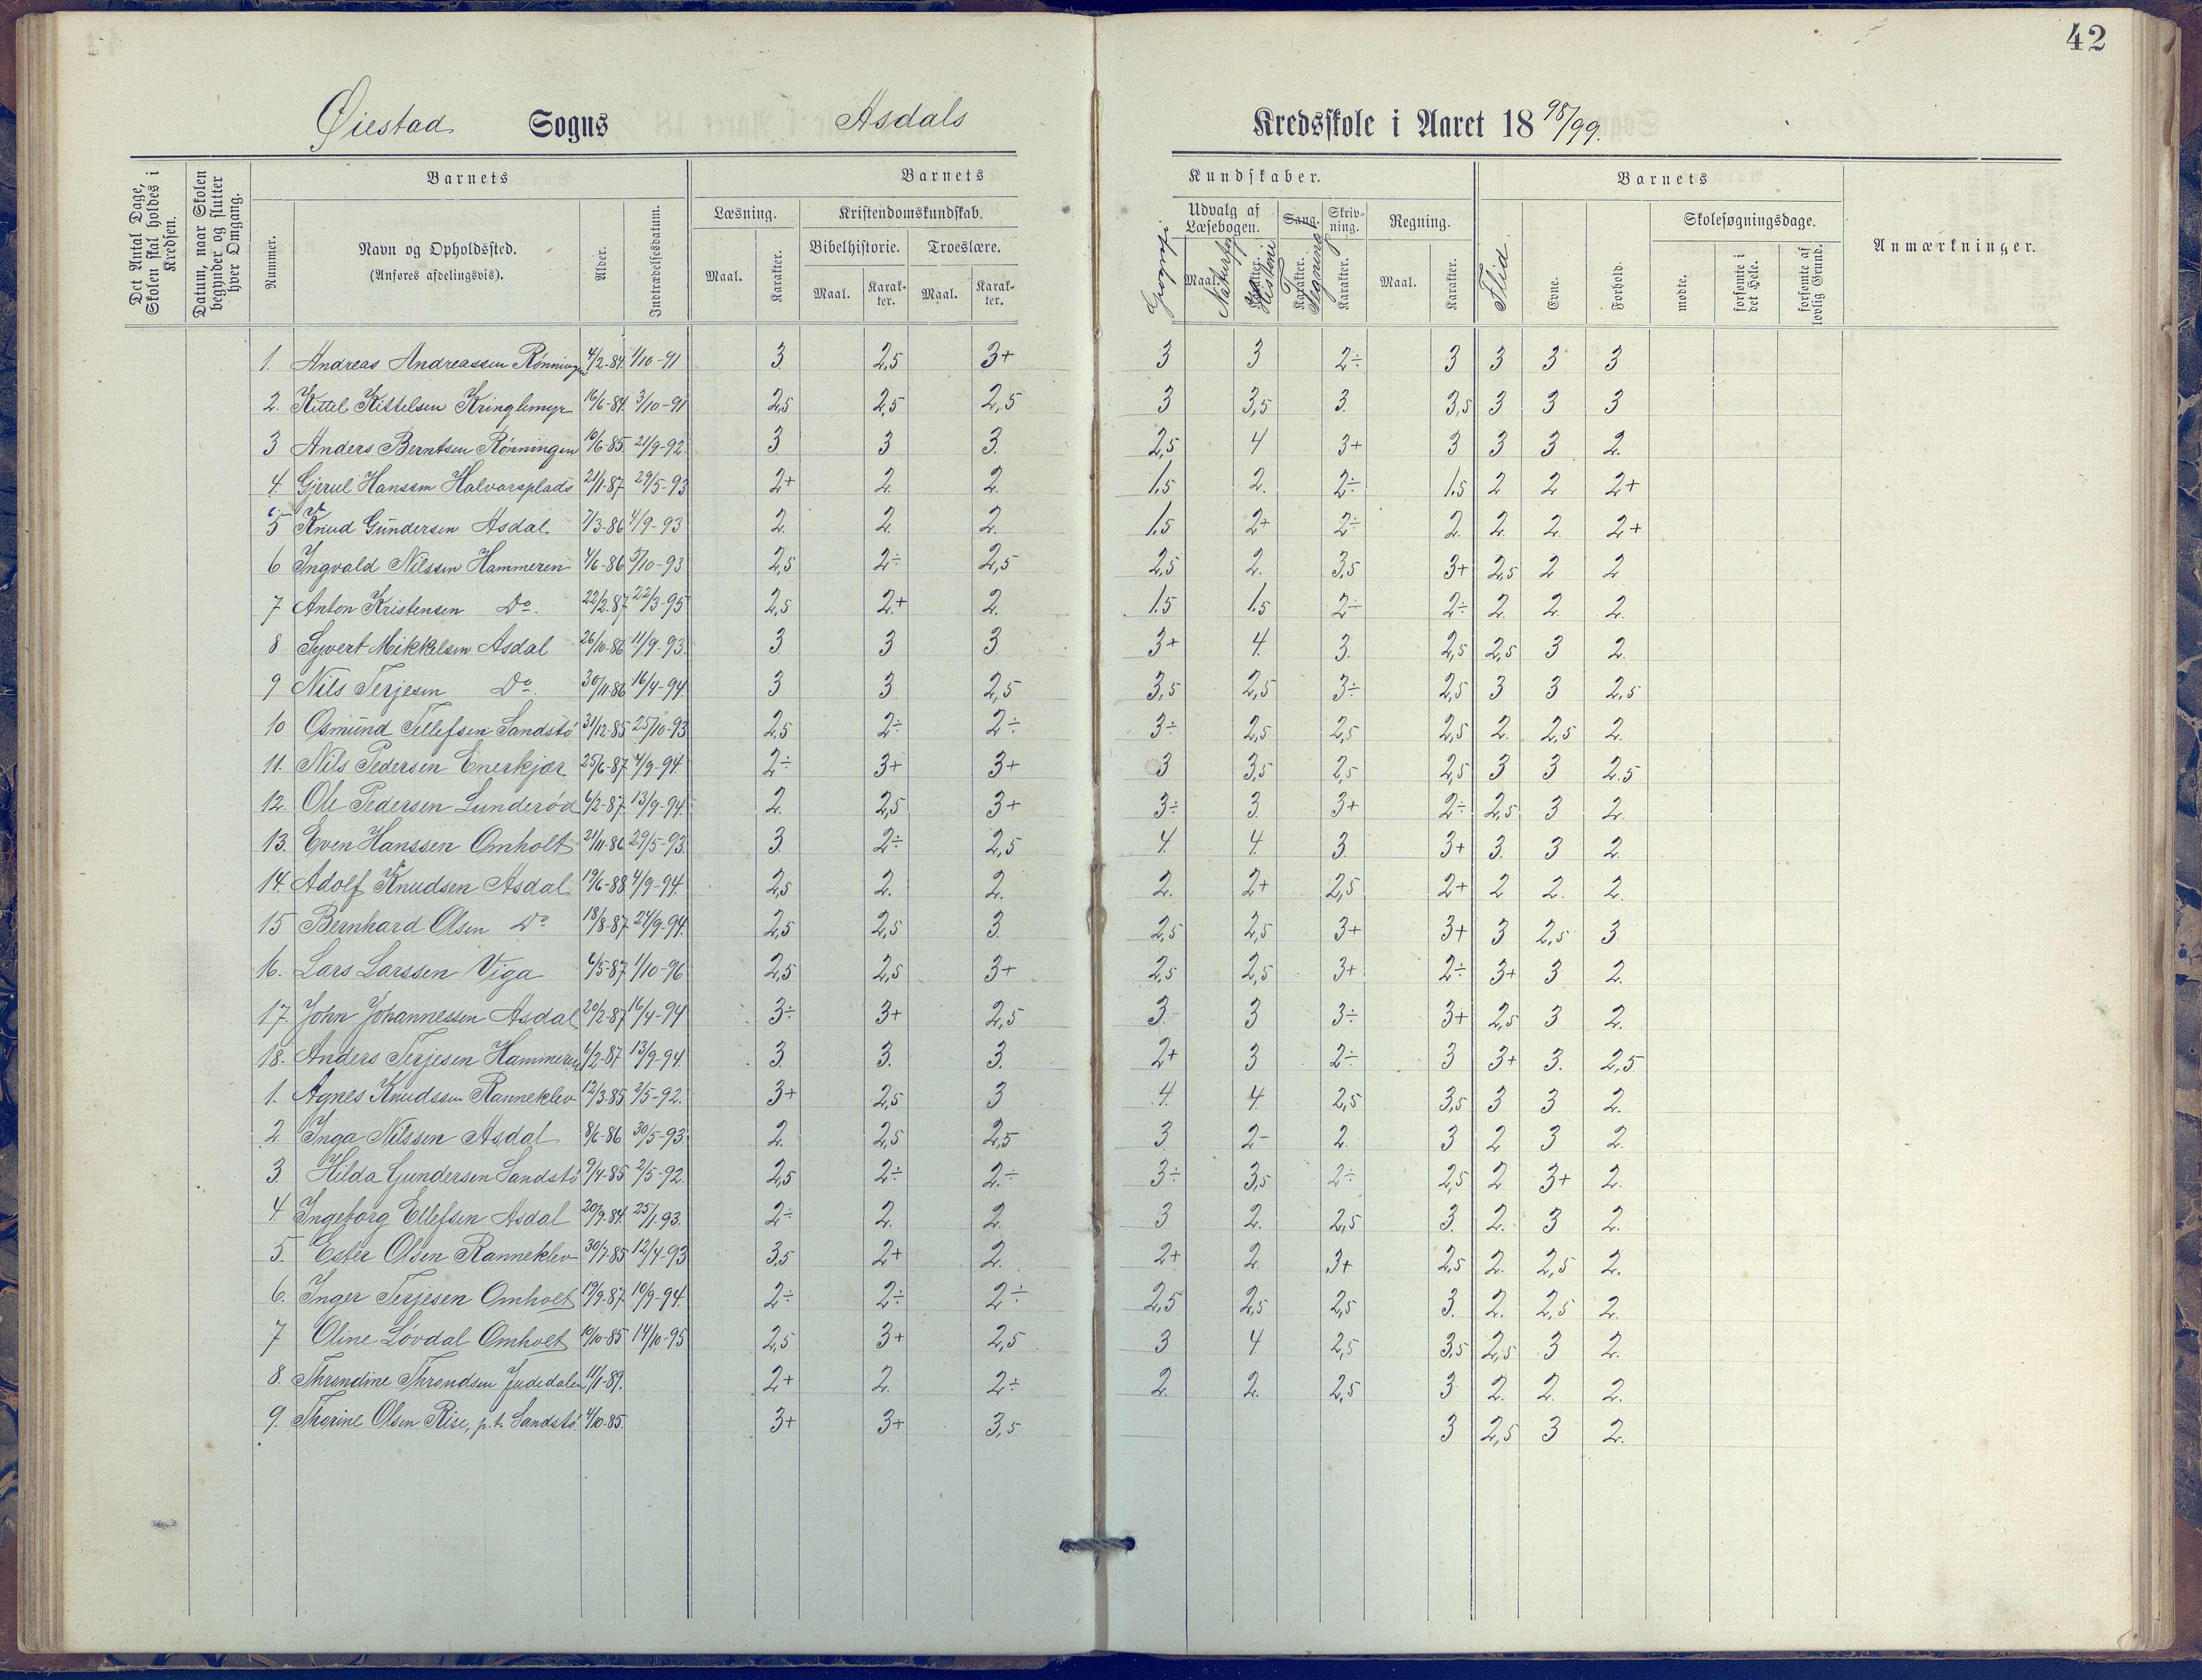 42
Øiestad Sogns Asdals Kredsskole i Aaret 1898/99.
Det Antal Dage, Skolen skal holdes i Kredsen.
Datum, naar Skolen begynder og slutter hver Omgang.
Barnets Barnets Kundskaber. Barnets
Nummer. Navn og Opholdssted. (Anføres afdelingsvis). Alder. Indtrædelsesdatum.
Læsning. Kristendomskundskab. Udvalg af Læsebogen. Sang. Skrivning. Regning. Skolesøgningsdage. Anmærkninger.
Bibelhistorie. Troeslære.
Maal. Karakter. Maal. Karakter. Maal. Karakter. Geografi Maal. Naturfag Karakter. Historie Karakter. Tegning Karakter. Maal. Karakter. Flid. Evne. Forhold. mødte. forsømte i det Hele. forsømte af lovlig Grund.
1. Andreas Andreassen Rønningen 4/2-84. 1/10-91 3. 2,5 3+ 3 3 2÷ 3 3 3 3
2. Kittel Kittelsen Kringlemyr 16/6-84. 3/10-91 2,5 2,5 2,5 3 3,5 3. 3,5 3 3 3
3 Anders Berntsen Rønningen 10/6-85. 21/9-92. 3. 3 3. 2,5 4 3+ 3 3 3 2.
4. Gjerul Hanssen Halvorsplads 21/1-87 29/5-93 2+ 2. 2. 1.5 2. 2÷ 1.5 2 2 2+
5 Knud Gundersen Asdal 7/3-86 4/9-93 2. 2. 2. 1.5 2+ 2÷ 2. 2. 2. 2+
6 Ingvald Nilssen Hammeren 4/6-86 5/10-93 2,5 2÷ 2,5 2,5 2. 3,5 3+ 2,5 2 2
7 Anton Kristensen Do. 22/2-87. 22/3-95 2,5 2+ 2. 1.5 1.5 2÷ 2÷ 2. 2. 2.
8 Syvert Mikkelsen Asdal 26/10-86 11/9-93. 3. 3 3. 3+ 4. 3. 2,5 2,5 3 2.
9 Nils Terjesen Do. 30/11-86 16/4-94. 3 3 2,5 3,5 2,5 3÷ 2,5 3 3 2,5
10 Osmund Tellefsen Sandstø 31/12-85 25/10-93 2,5 2÷ 2÷ 3÷ 2,5 2,5 2,5 2. 2,5 2.
11. Nils Pedersen Enerkjær 25/6-87. 4/9-94. 2÷ 3+ 3+ 3 3,5 2,5 2,5 3 3 2.5
12. Ole Pedersen Lunderød 6/2-87. 13/9-94. 2. 2,5 3+ 3÷ 3. 3+ 2÷ 2,5 3 2.
13. Even Hanssen Omholt 21/11-86 29/5-93. 3. 2÷ 2,5 4. 4. 3. 3+ 3. 3 2.
14. Adolf Knudsen Asdal 19/6-88. 4/9-94. 2,5 2. 2. 2. 2+ 2,5 2+ 2 2. 2.
15 Bernhard Olsen Do 18/8-87. 24/9-94. 2,5 2,5 3. 2,5 2,5 3+ 3+ 3 2,5 3
16. Lars Larssen Viga 6/5-87. 1/10-96 2,5 2,5 3+ 2,5 2,5 3+ 2÷ 3+ 3 2.
17. John Johannessen Asdal 20/2-87 16/4-94 3÷ 3+ 2,5 3. 3 3÷ 3+ 2,5 3 2.
18. Anders Terjesen Hammeren 6/2-87 13/9-94. 3. 3. 3. 2+ 3 2÷ 3 3+ 3. 2,5
1. Agnes Knudssen Ranneklev 12/3-85 2/5-92. 3+ 2,5 3 4. 4. 2,5 3,5 3 3 2.
2 Inga Nilssen Asdal 8/6-86 30/5-93. 2. 2,5 2,5 3. 2- 2. 3 2 3 2.
3. Hilda Gundersen Sandstø 9/4-85 2/5-92. 2,5 2÷ 2÷ 3÷ 3,5 2÷ 2,5 2 3+ 2.
4. Ingeborg Ellefsen Asdal 20/9-84. 25/1-93. 2÷ 2. 2. 3 2. 2,5 3. 2. 3 2.
5. Ester Olsen Ranneklev 30/7-85 12/4-93 3,5 2+ 2. 2+ 2. 3+ 2,5 2. 2,5 2.
6. Inger Terjesen Omholt 19/9-87 10/9-94. 2÷ 2÷ 2÷ 2,5 2,5 2,5 3. 2. 2,5 2.
7 Oline Løvdal Omholt 19/10-85 14/10-95 2,5 3+ 2,5 3 4 2,5 3,5 2,5 3 2.
8. Throndine Throndsen Judedalen 11/1-89. 2+ 2. 2÷ 2. 2. 2,5 3 2. 2. 2.
9. Thorine Olsen Rise, p.t. Sandstø. 4/10-85. 3+ 3+ 3,5 3 2,5 3 2.